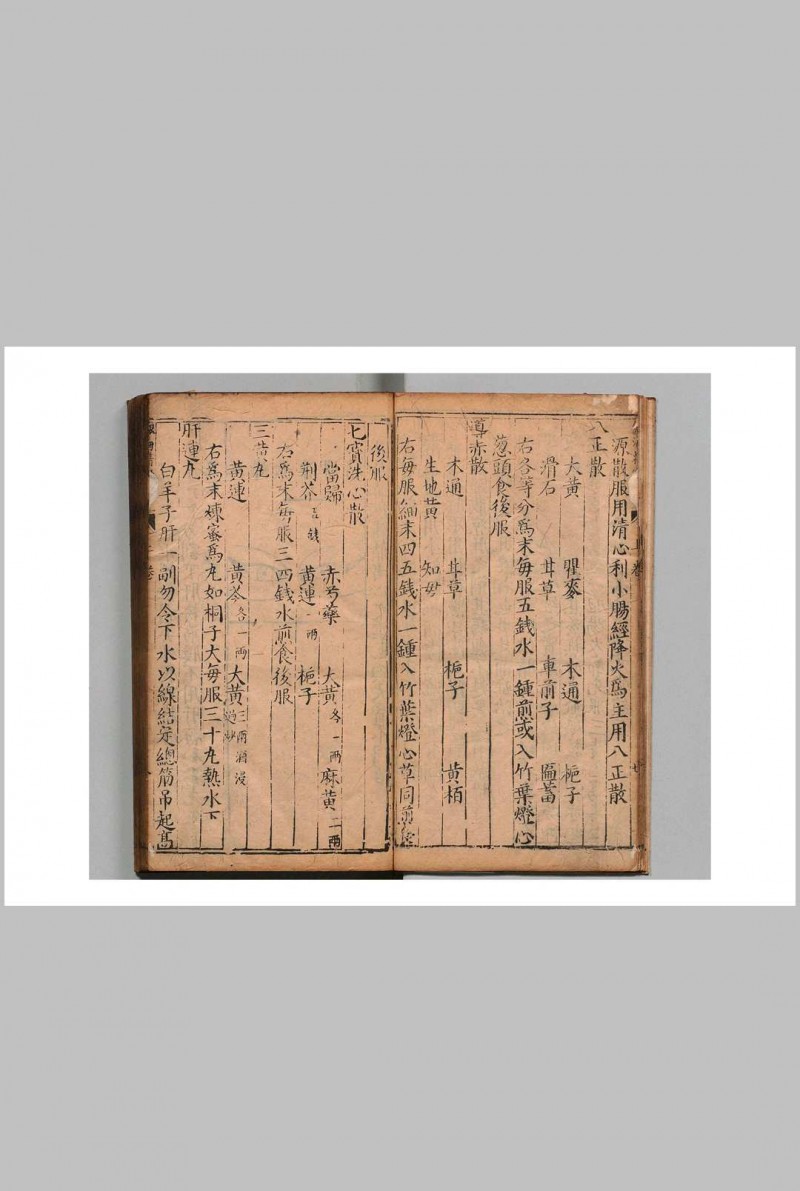 源散服用清心利小腸經降火爲主用八正散
八正散
大黃 瞿麥 木通 梔子
滑石 甘草 車前子 匾蓄
右各等分爲末每服五錢水一鍾煎或入竹葉燈心
葱頭食後服
導赤散
木通 甘草 梔子 黃栢
生地黃 知母
右每服細末四五錢水一鍾入竹葉燈心草同煎食
後服
七寶洗心散
當歸 赤芍藥 大黃各一兩 麻黃二兩
荆芥五錢 黃連一兩 梔子
右爲末每服三四錢水煎食後服
三黃丸
黃連 黃芩各一兩 大黃三兩酒浸過炒
右爲末煉蜜爲丸如桐子大每服三十丸熱水下
肝連丸
白羊子肝一副勿令下水以線結定總筋吊起高